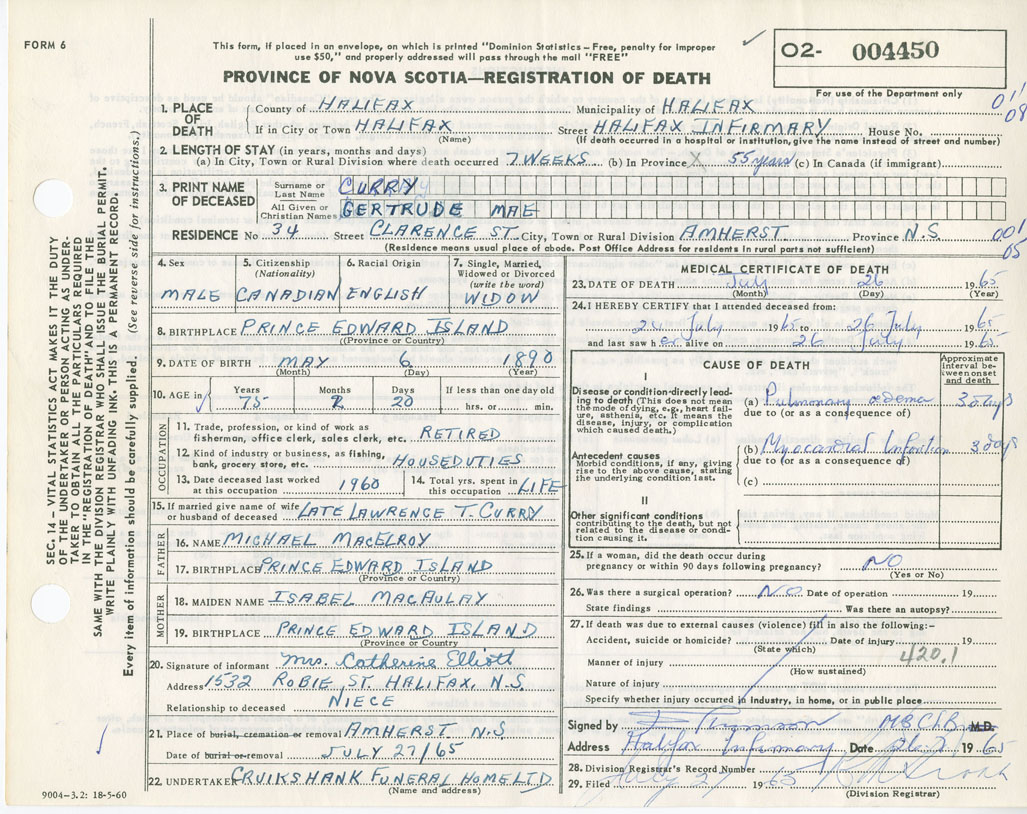 FORM 6
This form, if placed in an envelope, on which is printed "Dominion Statistics – Free, penalty for improper
use $50," and properly addressed will pass through the mail "FREE"
02- 004450
For use of the Department only
PROVINCE OF NOVA SCOTIA—REGISTRATION OF DEATH
1. PLACE OF DEATH
County of HALIFAX Municipality of HALIFAX
If in City or Town HALIFAX (Name) Street HALIFAX INFIRMARY House No.
(If death occurred in a hospital or institution, give the name instead of street and number)
011
08
2. LENGTH OF STAY (in years, months and days)
(a) In City, Town or Rural Division where death occurred 7 WEEKS (b) In Province X 55 years (c) In Canada (if immigrant)
3. PRINT NAME OF DECEASED
Surname or Last Name CURRY
All Given or Christian Names GERTRUDE MAE
RESIDENCE No 34 Street CLARENCE ST. City, Town or Rural Division AMHERST Province N.S
(Residence means usual place of abode. Post Office Address for residents in rural parts not sufficient)
001
05
4. Sex
MALE
5. Citizenship (Nationality)
CANADIAN
6. Racial Origin
ENGLISH
7. Single, Married, Widowed or Divorced (write the word)
WIDOW
8. BIRTHPLACE PRINCE EDWARD ISLAND
((Province or Country)
9. DATE OF BIRTH MAY 6 1890
(Month) (Day) (Year)
10. AGE in
Years 75 Months 2 Days 20 If less than one day old
hrs. or min.
OCCUPATION
11. Trade, profession, or kind of work as
fisherman, office clerk, sales clerk, etc. RETIRED
12. Kind of industry or business, as fishing,
bank, grocery store, etc. HOUSEDUTIES
13. Date deceased last worked
at this occupation 1960
14. Total yrs. spent in
this occupation LIFE
15. If married give name of wife
or husband of deceased LATE LAWRENCE T. CURRY
FATHER
16. NAME MICHAEL MACELROY
17. BIRTHPLACE PRINCE EDWARD ISLAND
(Province or Country)
MOTHER
18. MAIDEN NAME ISABEL MACAULAY
19. BIRTHPLACE PRINCE EDWARD ISLAND
(Province or Country)
20. Signature of informant Mrs. Catherine Elliott
Address 1532 ROBIE ST. HALIFAX, N.S.
Relationship to deceased NIECE
21. Place of burial, cremation or removal AMHERST N.S
Date of burial or removal JULY 27/65
22. UNDERTAKER CRUIKSHANK FUNERAL HOME LTD
(Name and address)
MEDICAL CERTIFICATE OF DEATH
23. DATE OF DEATH July 26 1965
(Month) (Day) (Year)
24. I HEREBY CERTIFY that I attended deceased from:
24 July 1965 to 26 July 1965
and last saw her alive on 26 July 1965
CAUSE OF DEATH
Approximate interval between onset and death
I
Disease or condition directly leading to death (This does not mean the mode of dying, e.g., heart failure, asthenia, etc. It means the disease, injury, or complication which caused death.)
(a) Pulmonary oedema 3 days
due to (or as a consequence of)
Antecedent causes
Morbid conditions, if any, giving rise to the above cause, stating the underlying condition last.
(b) Myocardial Infarction 3 days
due to (or as a consequence of)
(c)
II
Other significant conditions
contributing to the death, but not related to the disease or condition causing it.
25. If a woman, did the death occur during
pregnancy or within 90 days following pregnancy? NO
(Yes or No)
26. Was there a surgical operation? NO Date of operation 19
State findings Was there an autopsy?
27. If death was due to external causes (violence) fill in also the following:–
Accident, suicide or homicide? Date of injury 19
(State which)
420.1
Manner of injury
(How sustained)
Nature of injury
Specify whether injury occurred in industry, in home, or in public place
Signed by Thomson M.B.Ch.B. M.D.
Address Halifax Infirmary Date 26.7 1965
28. Division Registrar's Record Number
29. Filed July 27 1965
(Division Registrar)
SEC. 14 - VITAL STATISTICS ACT MAKES IT THE DUTY
OF THE UNDERTAKER OR PERSON ACTING AS UNDER-
TAKER TO OBTAIN ALL THE PARTICULARS REQUIRED
IN THE "REGISTRATION OF DEATH" AND TO FILE THE
SAME WITH THE DIVISION REGISTRAR WHO SHALL ISSUE THE BURIAL PERMIT.
WRITE PLAINLY WITH UNFADING INK. THIS IS A PERMANENT RECORD.
Every item of information should be carefully supplied. (See reverse side for instructions.)
9004–3.2: 18-5-60